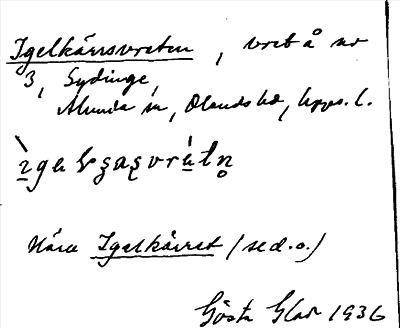 Igelkärrsvreten, vret å nr
3, Sydinge,
Alunda sn, Olands hd, Upps. l.
Nära Igelkärret (se d. o.)
Gösta 1936